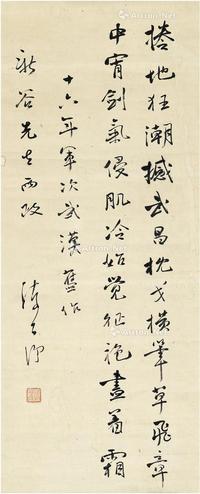 捲地狂潮撼武昌枕戈横筆草飛章
中宵劍氣侵肌冷始覺征袍盡著霜
十六年軍次武漢舊作
新谷先生兩政
陳